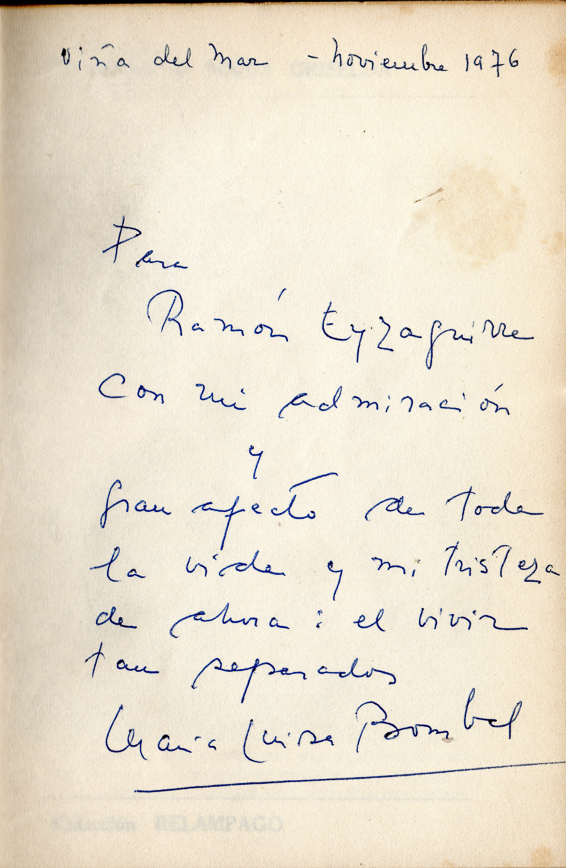 Viña del Mar - Noviembre 1976
Para
Ramón Eyzaguirre
Con mi admiración
y
gran afecto de toda
la vida y mi tristeza
de ahora: el vivir
tan separados
María Luisa Bombal
Colección RELAMPAGO